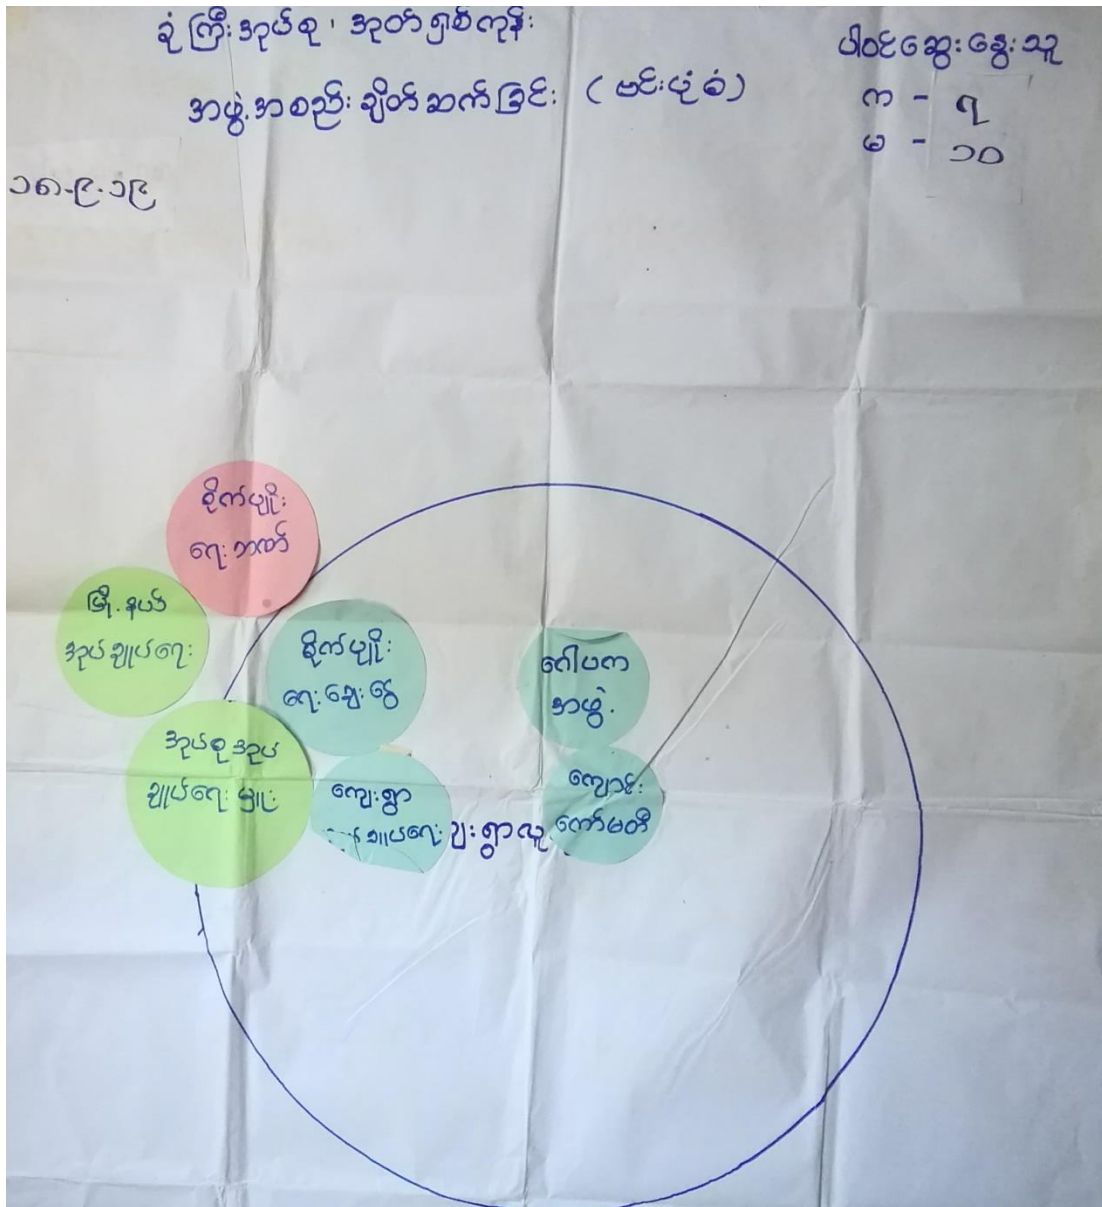 ခုံကြီးအုပ်စု၊ အုတ်ရှစ်ကုန်း
အဖွဲ့အစည်းချိတ်ဆက်ခြင်း (ဗင်းပုံစံ)
ပါဝင်ဆွေးနွေးသူ
က - ၇
မ - ၁၀
၁၈-၉-၁၉
စိုက်ပျိုး
ရေးဘဏ်
မြို့နယ်
အုပ်ချုပ်ရေး
စိုက်ပျိုး
ရေးချေးငွေ
ဂေါပက
အဖွဲ့
အုပ်စုအုပ်
ချုပ်ရေးမှူး
ကျေးရွာ
ချုပ်ရေး
ကျောင်း
ကော်မတီ
ရွာလူ